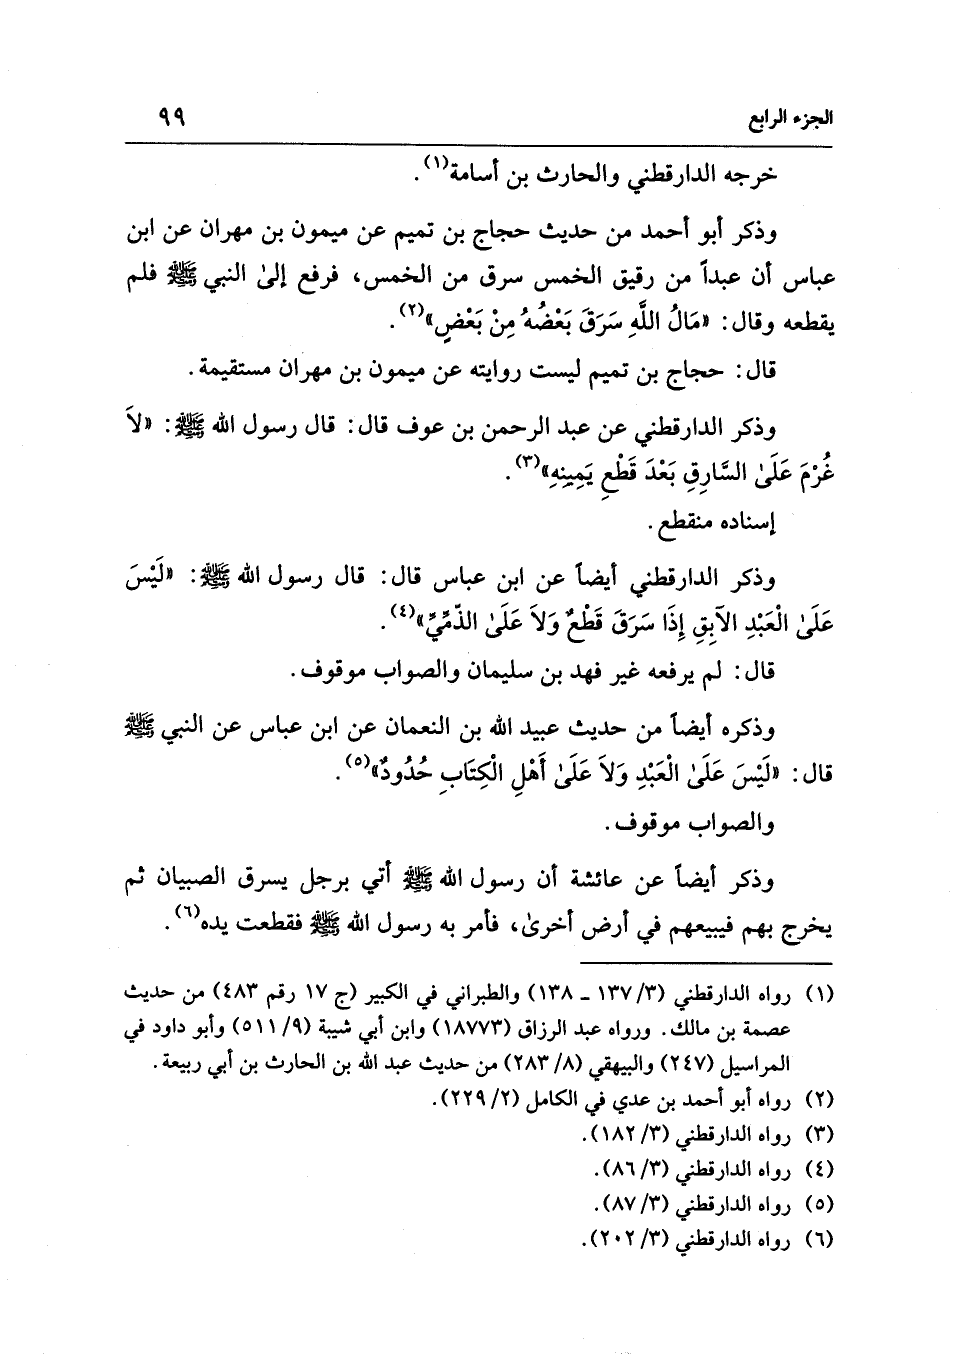 الجزء الرابع ٩٩
خرجه الدارقطني والحارث بن أسامة(١).
وذكر أبو أحمد من حديث حجاج بن تميم عن ميمون بن مهران عن ابن
عباس أن عبداً من رقيق الخمس سرق من الخمس، فرفع إلىٰ النبي ﷺ فلم
يقطعه وقال: «مَالُ اللَّهِ سَرَقَ بَعْضُهُ مِنْ بَعْضٍ»(٢).
قال: حجاج بن تميم ليست روايته عن ميمون بن مهران مستقيمة.
وذكر الدارقطني عن عبد الرحمن بن عوف قال: قال رسول الله ﷺ: «لاَ
غُرْمَ عَلَىٰ السَّارِقِ بَعْدَ قَطْعِ يَمِينِهِ»(٣).
إسناده منقطع.
وذكر الدارقطني أيضاً عن ابن عباس قال: قال رسول الله ﷺ: «لَيْسَ
عَلَىٰ الْعَبْدِ الآبِقِ إِذَا سَرَقَ قَطْعٌ وَلاَ عَلَىٰ الذِّمِّيِّ»(٤).
قال: لم يرفعه غير فهد بن سليمان والصواب موقوف.
وذكره أيضاً من حديث عبيد الله بن النعمان عن ابن عباس عن النبي ﷺ
قال: «لَيْسَ عَلَىٰ الْعَبْدِ وَلاَ عَلَىٰ أَهْلِ الْكِتَابِ حُدُودٌ»(٥).
والصواب موقوف.
وذكر أيضاً عن عائشة أن رسول الله ﷺ أتي برجل يسرق الصبيان ثم
يخرج بهم فيبيعهم في أرض أخرىٰ، فأمر به رسول الله ﷺ فقطعت يده(٦).
(١) رواه الدارقطني (٣/ ١٣٧ ـ ١٣٨) والطبراني في الكبير (ج ١٧ رقم ٤٨٣) من حديث
عصمة بن مالك. ورواه عبد الرزاق (١٨٧٧٣) وابن أبي شيبة (٩/ ٥١١) وأبو داود في
المراسيل (٢٤٧) والبيهقي (٨/ ٢٨٣) من حديث عبد الله بن الحارث بن أبي ربيعة.
(٢) رواه أبو أحمد بن عدي في الكامل (٢/ ٢٢٩).
(٣) رواه الدارقطني (٣/ ١٨٢).
(٤) رواه الدارقطني (٣/ ٨٦).
(٥) رواه الدارقطني (٣/ ٨٧).
(٦) رواه الدارقطني (٣/ ٢٠٢).